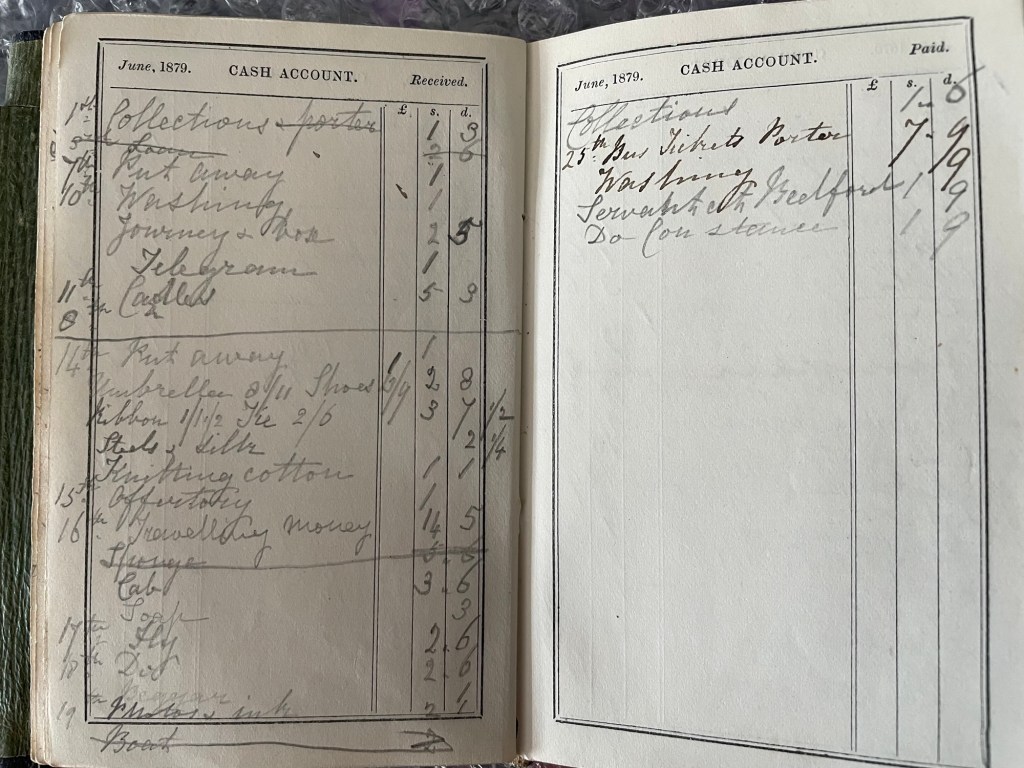 June, 1879. CASH ACCOUNT. Received.
£ s. d.
1st Collections porter 1 9
Loan 2 6
7th Put away 1
10th Washing 1
Journey & box 2 5
Telegram 1
11th 5 9
8
14th Put away 1
Umbrella 8/11 Shoes 2 8
Ribbon 1/1 1/2 Tie 2/6 3 7 1/2
Steels & silk 2 1/4
Knitting cotton 1 1
15th Offertory 1
16th Travelling money 14 5
Sponge 6
Cab 3.6
Soap 3
17th Fly 2.6
18th Do 2.6
Beggar 1
19th Photos & ink 2
Boat
June, 1879. CASH ACCOUNT. Paid.
£ s. d.
Collections 1 6
25th Bus Tickets Porter 7 9
Washing 9
Servant at Bedford 1 9
Do Constance 1 9